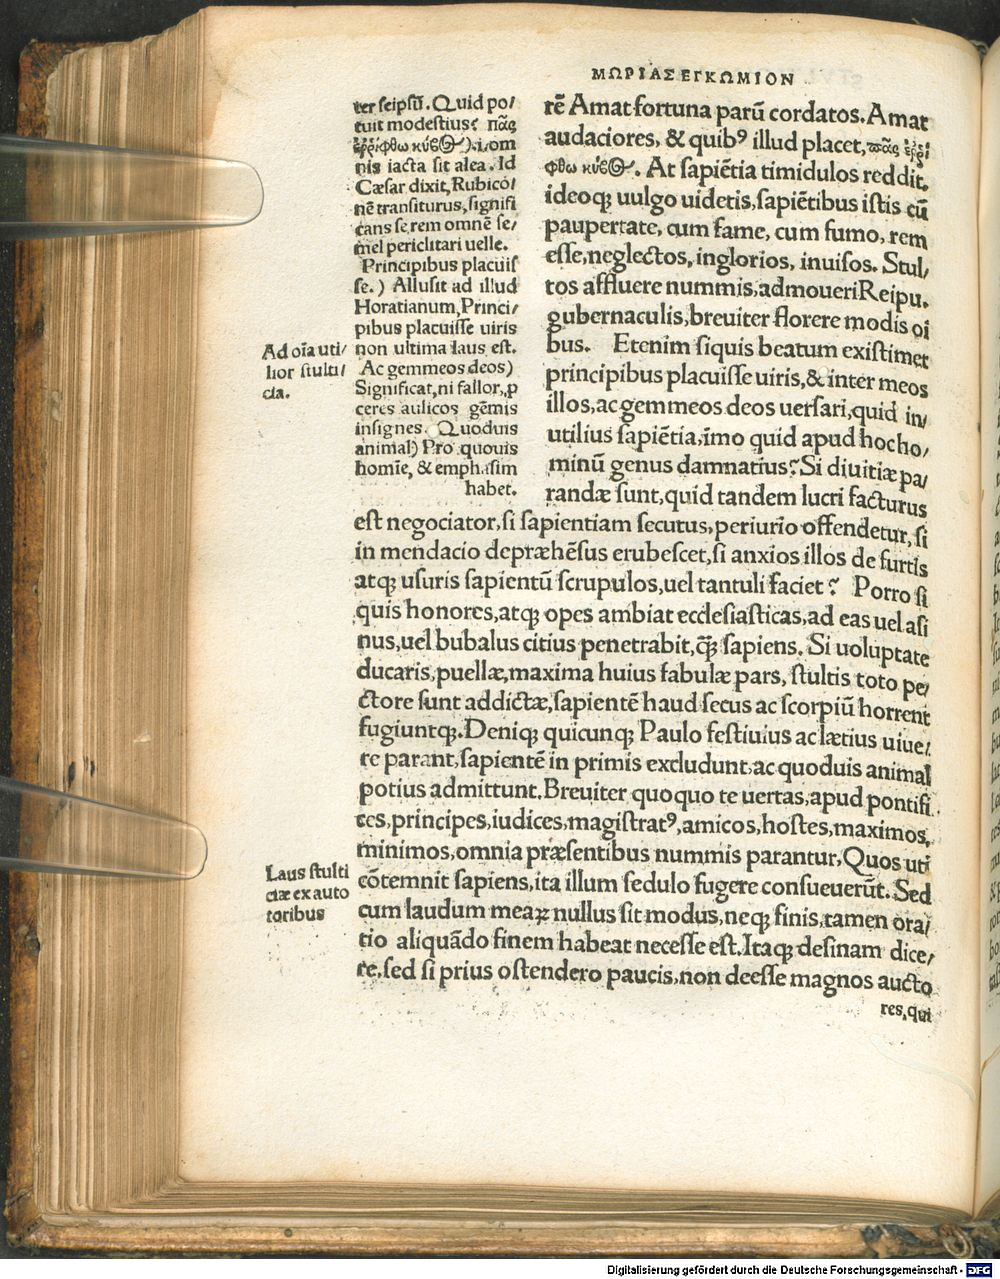 ΜΩΡΙΑΣ ΕΓΚΩΜΙΟΝ
ter seipsũ. Quid po/
tuit modestius? πᾶς
ἐῤῥίφθω κύβος) .i. om
nis iacta sit alea. Id
Cæsar dixit, Rubicó/
nẽ transiturus, signifi
cans se, rem omnẽ se/
mel periclitari uelle.
Principibus placuis
se.) Allusit ad illud
Horatianum, Princi/
pibus placuisse uiris
non ultima laus est.
Ac gemmeos deos)
Significat, ni fallor, p
ceres aulicos gẽmis
insignes. Quoduis
animal) Pro quouis
homĩe, & emphasim
habet.
Ad oĩa uti/
lior stulti/
cia.
rẽ Amat fortuna parũ cordatos. Amat
audaciores, & quibꝰ illud placet, πᾶς ἐῤῥί
φθω κύβος. At sapiẽtia timidulos reddit,
ideoqꝫ uulgo uidetis, sapiẽtibus istis cũ
paupertate, cum fame, cum fumo, rem
esse, neglectos, inglorios, inuisos. Stul/
tos affluere nummis, admoueri Reipu.
gubernaculis, breuiter florere modis oĩ
bus. Etenim siquis beatum existimet
principibus placuisse uiris, & inter meos
illos, ac gemmeos deos uersari, quid in/
utilius sapiẽtia, imo quid apud hoc ho/
minũ genus damnatius? Si diuitiæ pa/
randæ sunt, quid tandem lucri facturus
est negociator, si sapientiam secutus, periurio offendetur, si
in mendacio depræhẽsus erubescet, si anxios illos de furtis
atqꝫ usuris sapientũ scrupulos, uel tantuli faciet? Porro si
quis honores, atqꝫ opes ambiat ecclesiasticas, ad eas uel asi
nus, uel bubalus citius penetrabit, q̃ꝫ sapiens. Si uoluptate
ducaris, puellæ, maxima huius fabulæ pars, stultis toto pe/
ctore sunt addictæ, sapientẽ haud secus ac scorpiũ horrent
fugiuntqꝫ. Deniqꝫ quicunqꝫ Paulo festiuius ac lætius uiue/
re parant, sapientẽ in primis excludunt, ac quoduis animal
potius admittunt. Breuiter quoquo te uertas, apud pontifi
ces, principes, iudices, magistratꝰ, amicos, hostes, maximos,
minimos, omnia præsentibus nummis parantur, Quos uti
cõtemnit sapiens, ita illum sedulo fugere consueuerũt. Sed
cum laudum meaꝝ nullus sit modus, neqꝫ finis, tamen ora/
tio aliquãdo finem habeat necesse est. Itaqꝫ desinam dice/
re, sed si prius ostendero paucis, non deesse magnos aucto
Laus stulti
ciæ ex auto
toribus
res, qui
Digitalisierung gefördert durch die Deutsche Forschungsgemeinschaft - DFG